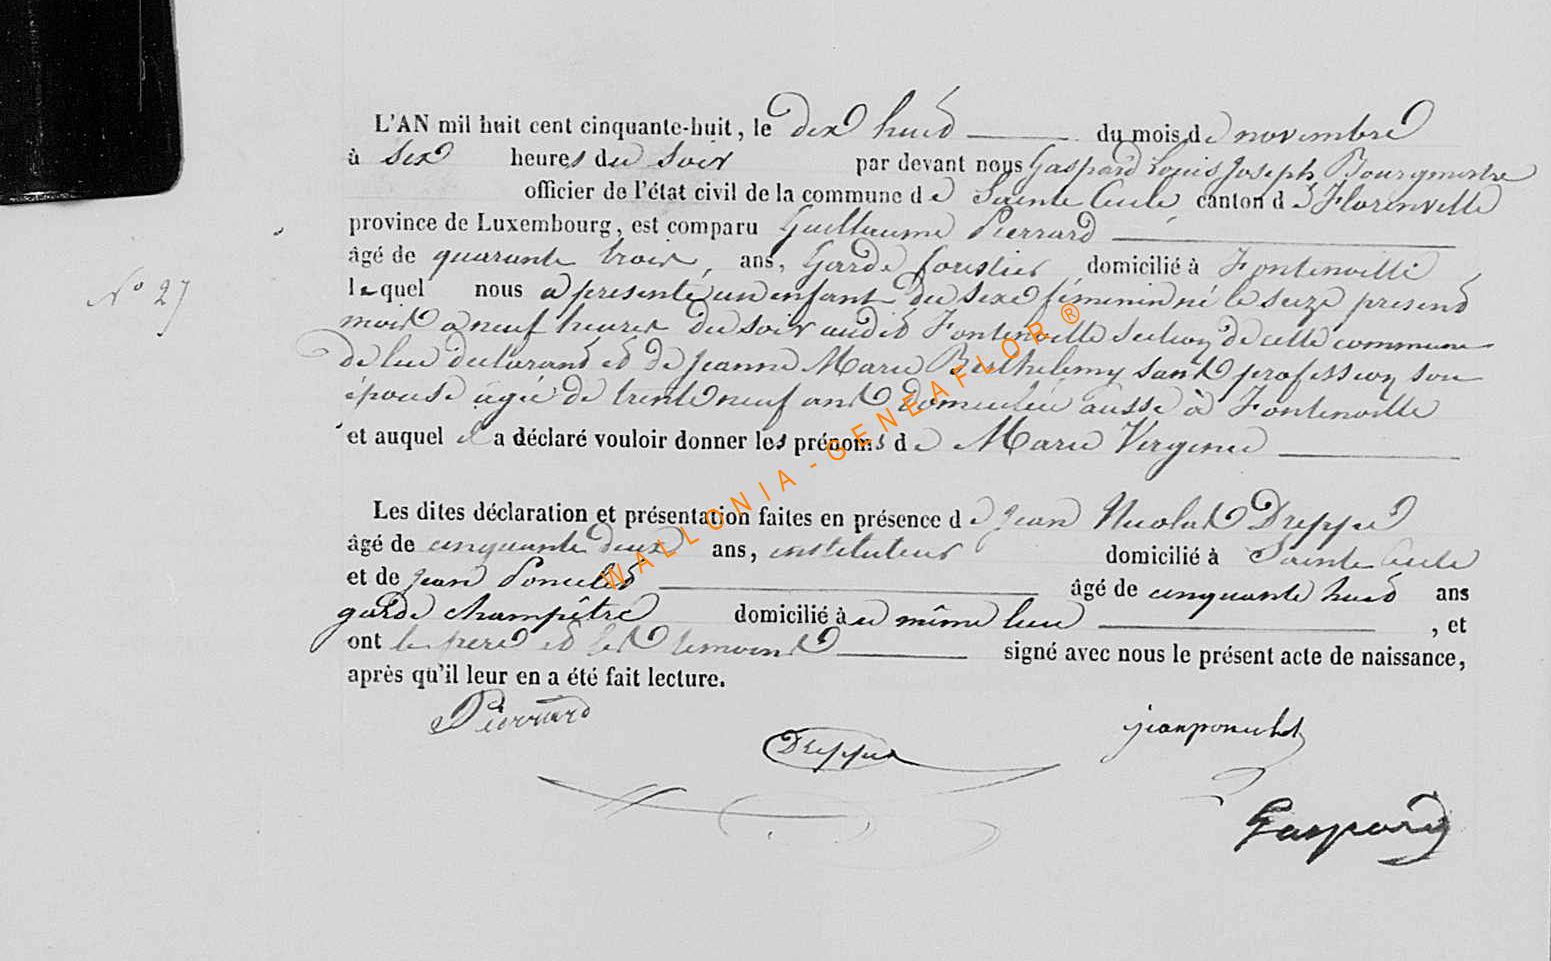 L'AN mil huit cent cinquante-huit, le dix huit du mois de novembre
à six heures du soir par devant nous Gaspard Louis Joseph Bourgmestre
officier de l'état civil de la commune de Sainte Cécile canton de Florenville
province de Luxembourg, est comparu Guillaume Pierrard
âgé de quarante trois, ans, Garde forestier domicilié à Fontenoille
N° 27
lequel nous a présenté un enfant du sexe féminin né le seize présent
mois à neuf heures du soir audit Fontenoille section de cette commune
de lui déclarant et de Jeanne Marie Barthelemy sans profession son
épouse agée de trente neuf ans domiciliée aussi à Fontenoille
et auquel il a déclaré vouloir donner les prénoms de Marie Virginie
Les dites déclaration et présentation faites en présence de Jean Nicolas Dreppe
âgé de cinquante deux ans, instituteur domicilié à Sainte Cécile
et de Jean Poncelet âgé de cinquante huit ans
garde champêtre domicilié à au même lieu , et
ont le père et les témoins signé avec nous le présent acte de naissance,
après qu'il leur en a été fait lecture.
Pierrard
Dreppe
jean poncelet
Gaspard
WALLONIA - GENEAFLOR ®